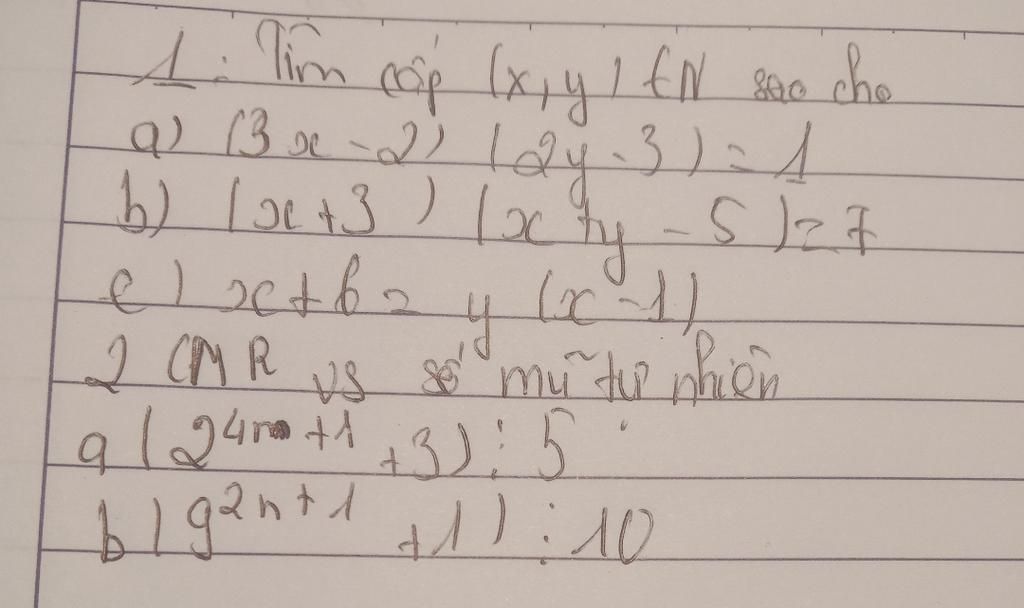 1: Tìm cặp (x, y) ∈ N sao cho
a) (3x - 2) (2y - 3) = 1
b) (x + 3) (x + y - 5) = 7
c) x + 6 = y (x - 1)
2 CMR vs số mũ tự nhiên
a (2⁴ⁿ⁺¹ + 3) ⋮ 5
b (9²ⁿ⁺¹ + 1) ⋮ 10